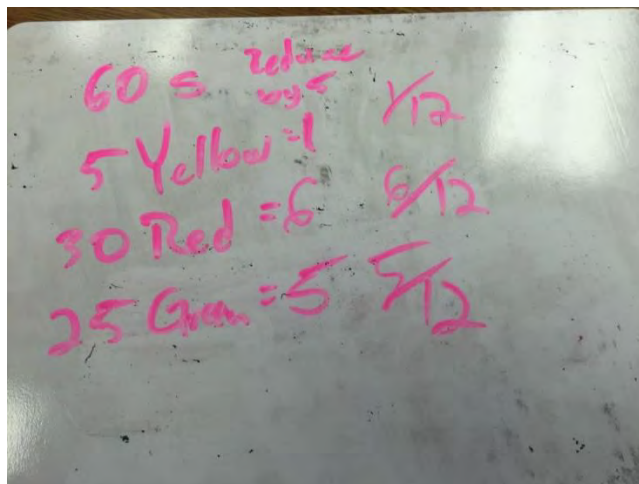 60 s reduce
by 5
5 Yellow = 1 1/12
30 Red = 6 6/12
25 Green = 5 5/12